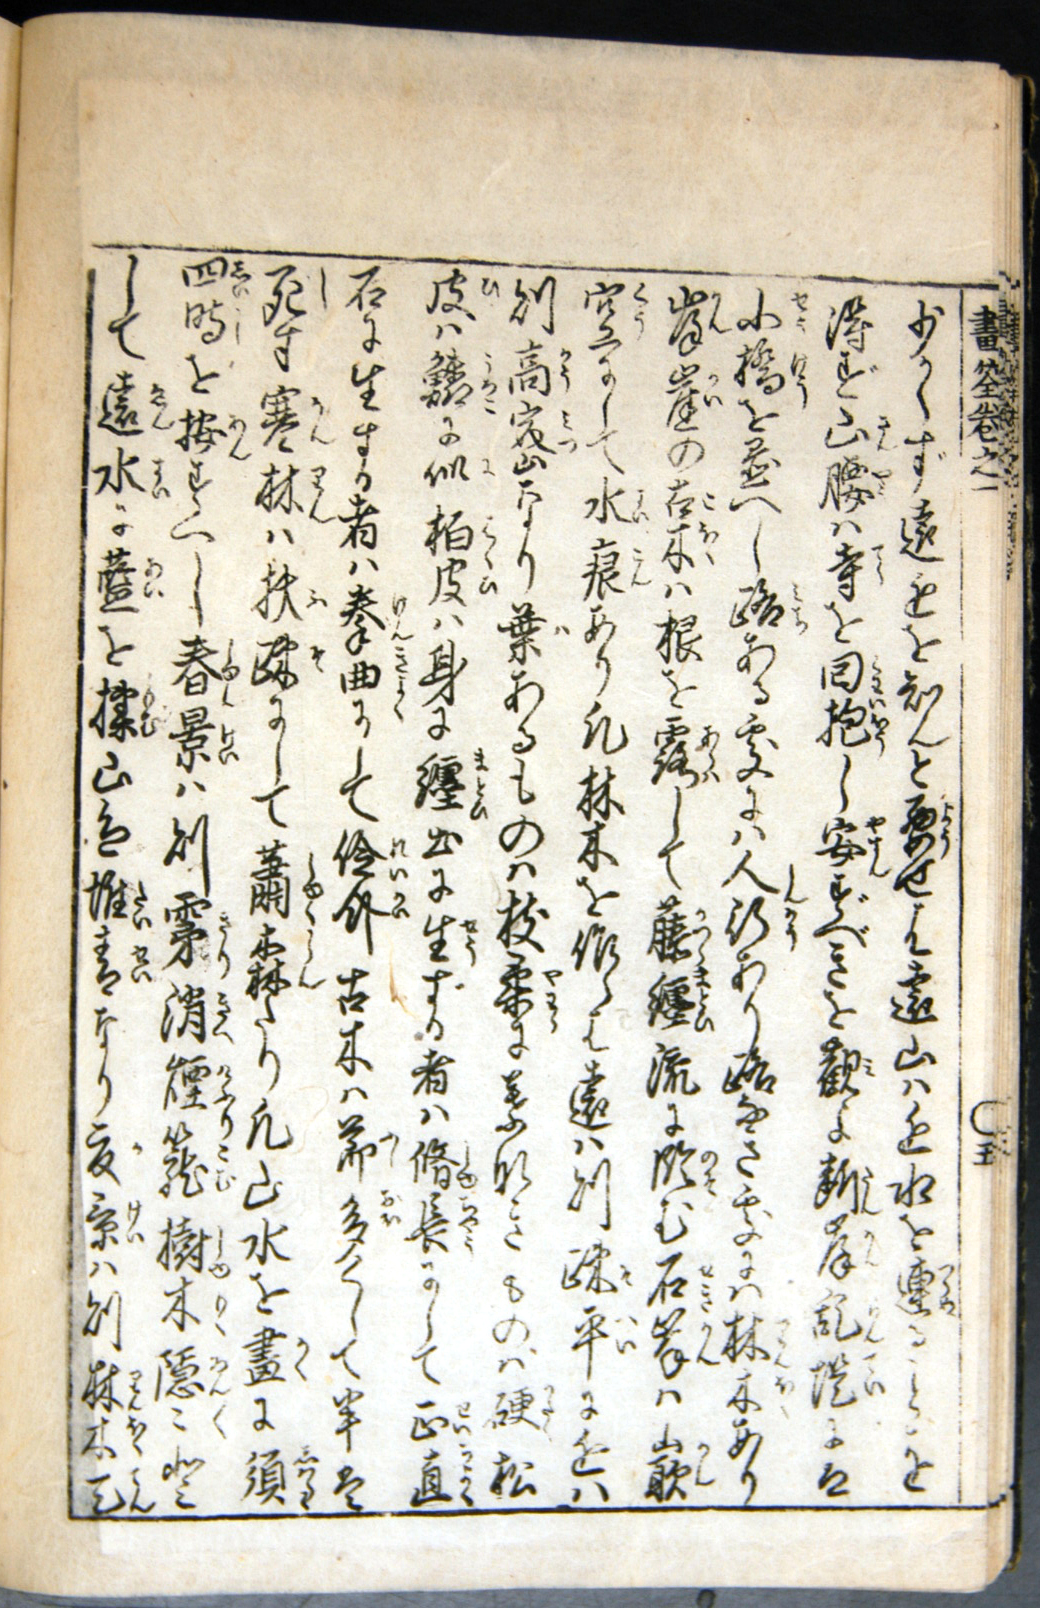 畫筌卷之一
少からず遠近を知んと要せば遠山ハ近水を連ることを
得ず山腰ハ寺を回抱し安ずべきを觀よ断岸乱堤には
小橋を並べし路ある處にハ人行あり路なき處にハ林木あり
岸崖の古木ハ根を露して藤纏流に臨む石岸ハ嵌
空にして水痕あり凡林木を作らば遠ハ則疎平に近ハ
則高密なり葉あるものハ枝柔に葉なきものハ硬松
皮ハ鱗に似柏皮ハ身に纏土に生ずる者ハ脩長にして正直
石に生ずる者ハ拳曲にして伶仃古木ハ節多くして半は
死す寒林ハ扶疎にして蕭森たり凡山水を畫に須
四時を按ずべし春景ハ則霧消煙籠樹木隱々と
して遠水に藍を揉山色堆青なり夏景ハ則林木天
五